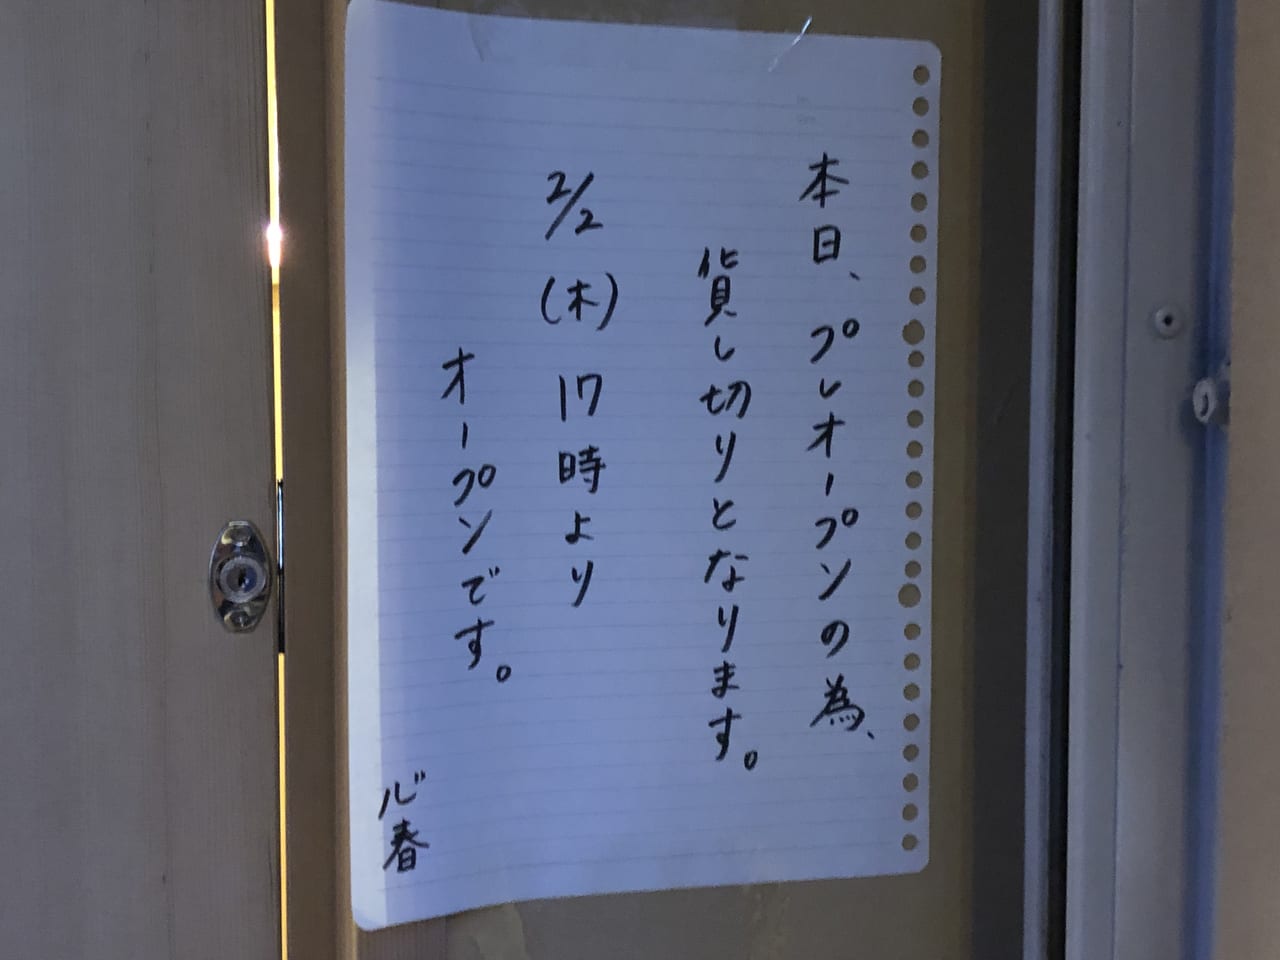 本日、プレオープンの為、
貸し切りとなります。
2/2(木)17時より
オープンです。
心春